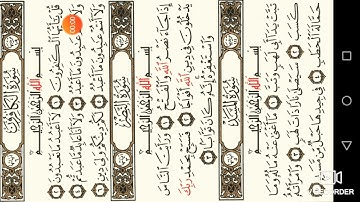 سُورَةُ الْكَافِرُونَ
بِسْمِ اللَّهِ الرَّحْمَٰنِ الرَّحِيمِ
قُلْ يَا أَيُّهَا الْكَافِرُونَ ١ لَا أَعْبُدُ مَا تَعْبُدُونَ ٢
وَلَا أَنْتُمْ عَابِدُونَ مَا أَعْبُدُ ٣ وَلَا أَنَا عَابِدٌ مَا عَبَدْتُمْ ٤
وَلَا أَنْتُمْ عَابِدُونَ مَا أَعْبُدُ ٥ لَكُمْ دِينُكُمْ وَلِيَ دِينِ ٦
سُورَةُ النَّصْرِ
بِسْمِ اللَّهِ الرَّحْمَٰنِ الرَّحِيمِ
إِذَا جَاءَ نَصْرُ اللَّهِ وَالْفَتْحُ ١ وَرَأَيْتَ النَّاسَ
يَدْخُلُونَ فِي دِينِ اللَّهِ أَفْوَاجًا ٢ فَسَبِّحْ بِحَمْدِ رَبِّكَ
وَاسْتَغْفِرْهُ إِنَّهُ كَانَ تَوَّابًا ٣
سُورَةُ الْمَسَدِ
بِسْمِ اللَّهِ الرَّحْمَٰنِ الرَّحِيمِ
تَبَّتْ يَدَا أَبِي لَهَبٍ وَتَبَّ ١ مَا أَغْنَى عَنْهُ مَالُهُ وَمَا
كَسَبَ ٢ سَيَصْلَى نَارًا ذَاتَ لَهَبٍ ٣ وَامْرَأَتُهُ
حَمَّالَةَ الْحَطَبِ ٤ فِي جِيدِهَا حَبْلٌ مِنْ مَسَدٍ ٥
00:00
RECORDER